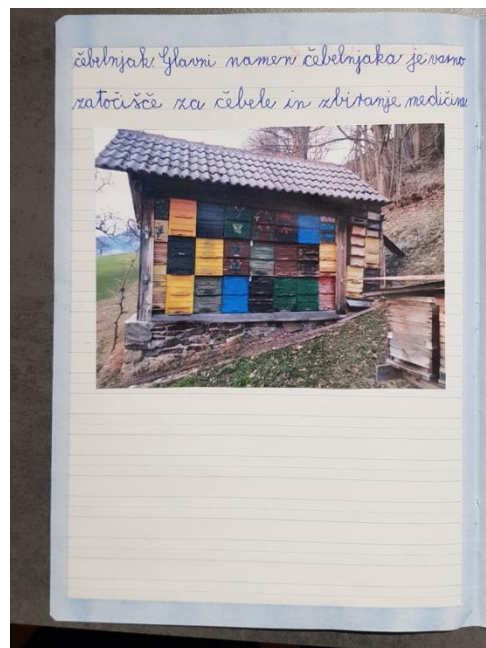 čebelnjak. Glavni namen čebelnjaka je varno
zatočišče za čebele in zbiranje medičine